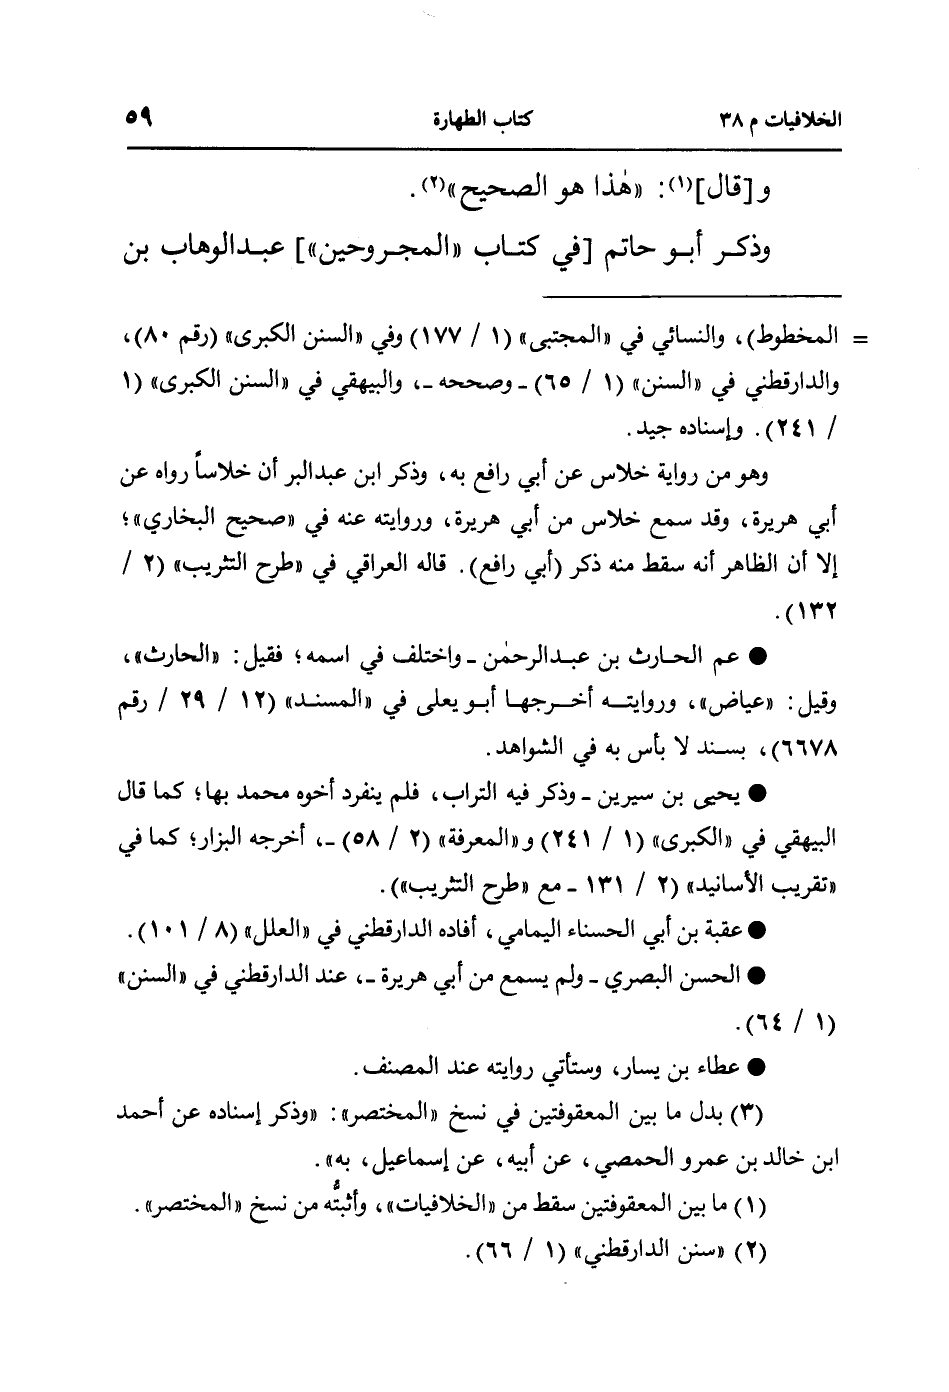 الخلافيات م ٣٨ كتاب الطهارة ٥٩
و[قال](١): «هٰذا هو الصحيح»(٢).
وذكر أبو حاتم [في كتاب «المجروحين»] عبدالوهاب بن
= المخطوط)، والنسائي في «المجتبى» (١ / ١٧٧) وفي «السنن الكبرى» (رقم ٨٠)،
والدارقطني في «السنن» (١ / ٦٥) ـ وصححه ـ، والبيهقي في «السنن الكبرى» (١
/ ٢٤١). وإسناده جيد.
وهو من رواية خلاس عن أبي رافع به، وذكر ابن عبدالبر أن خلاساً رواه عن
أبي هريرة، وقد سمع خلاس من أبي هريرة، وروايته عنه في «صحيح البخاري»؛
إلا أن الظاهر أنه سقط منه ذكر (أبي رافع). قاله العراقي في «طرح التثريب» (٢ /
١٣٢).
● عم الحارث بن عبدالرحمٰن ـ واختلف في اسمه؛ فقيل: «الحارث»،
وقيل: «عياض»، وروايته أخرجها أبو يعلى في «المسند» (١٢ / ٢٩ / رقم
٦٦٧٨)، بسند لا بأس به في الشواهد.
● يحيى بن سيرين ـ وذكر فيه التراب، فلم ينفرد أخوه محمد بها؛ كما قال
البيهقي في «الكبرى» (١ / ٢٤١) و«المعرفة» (٢ / ٥٨) ـ، أخرجه البزار؛ كما في
«تقريب الأسانيد» (٢ / ١٣١ ـ مع «طرح التثريب»).
● عقبة بن أبي الحسناء اليمامي، أفاده الدارقطني في «العلل» (٨ / ١٠١).
● الحسن البصري ـ ولم يسمع من أبي هريرة ـ، عند الدارقطني في «السنن»
(١ / ٦٤).
● عطاء بن يسار، وستأتي روايته عند المصنف.
(٣) بدل ما بين المعقوفتين في نسخ «المختصر»: «وذكر إسناده عن أحمد
ابن خالد بن عمرو الحمصي، عن أبيه، عن إسماعيل، به».
(١) ما بين المعقوفتين سقط من «الخلافيات»، وأثبتُّه من نسخ «المختصر».
(٢) «سنن الدارقطني» (١ / ٦٦).